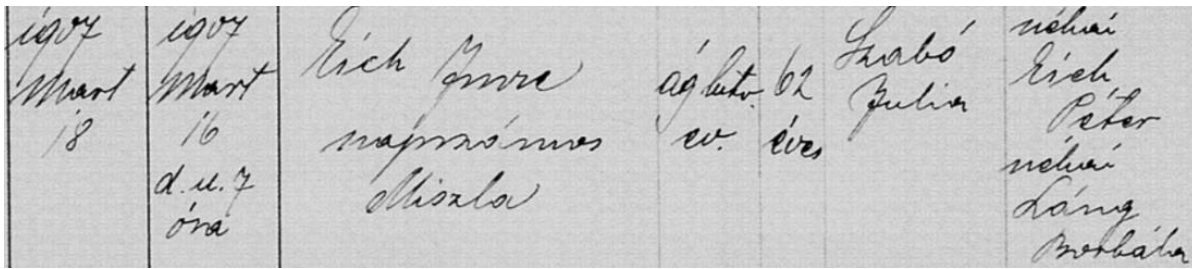 1907
Mart
18
1907
Mart
16
d. u. 7
óra
Eich Imre
napszámos
Miszla
ág hitv.
ev.
62
éves
Szabó
Julia
néhai
Eich
Péter
néhai
Láng
Borbála